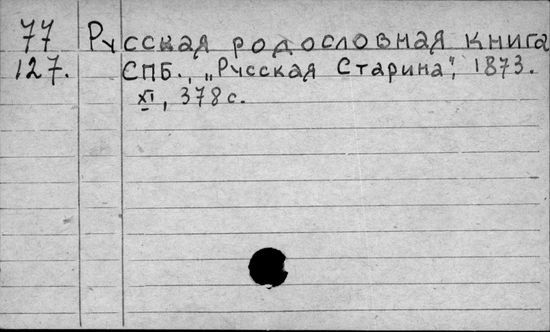 77 Русская родословная книга
127. СПБ., „Русская Старина", 1873.
XI, 378 с.